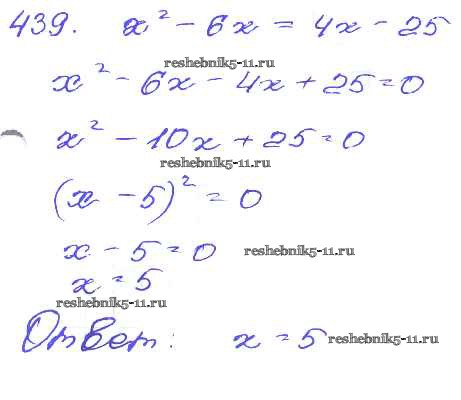 439. x² - 6x = 4x - 25
reshebnik5-11.ru
x² - 6x - 4x + 25 = 0
x² - 10x + 25 = 0
reshebnik5-11.ru
(x - 5)² = 0
x - 5 = 0 reshebnik5-11.ru
x = 5
reshebnik5-11.ru
Ответ: x = 5 reshebnik5-11.ru